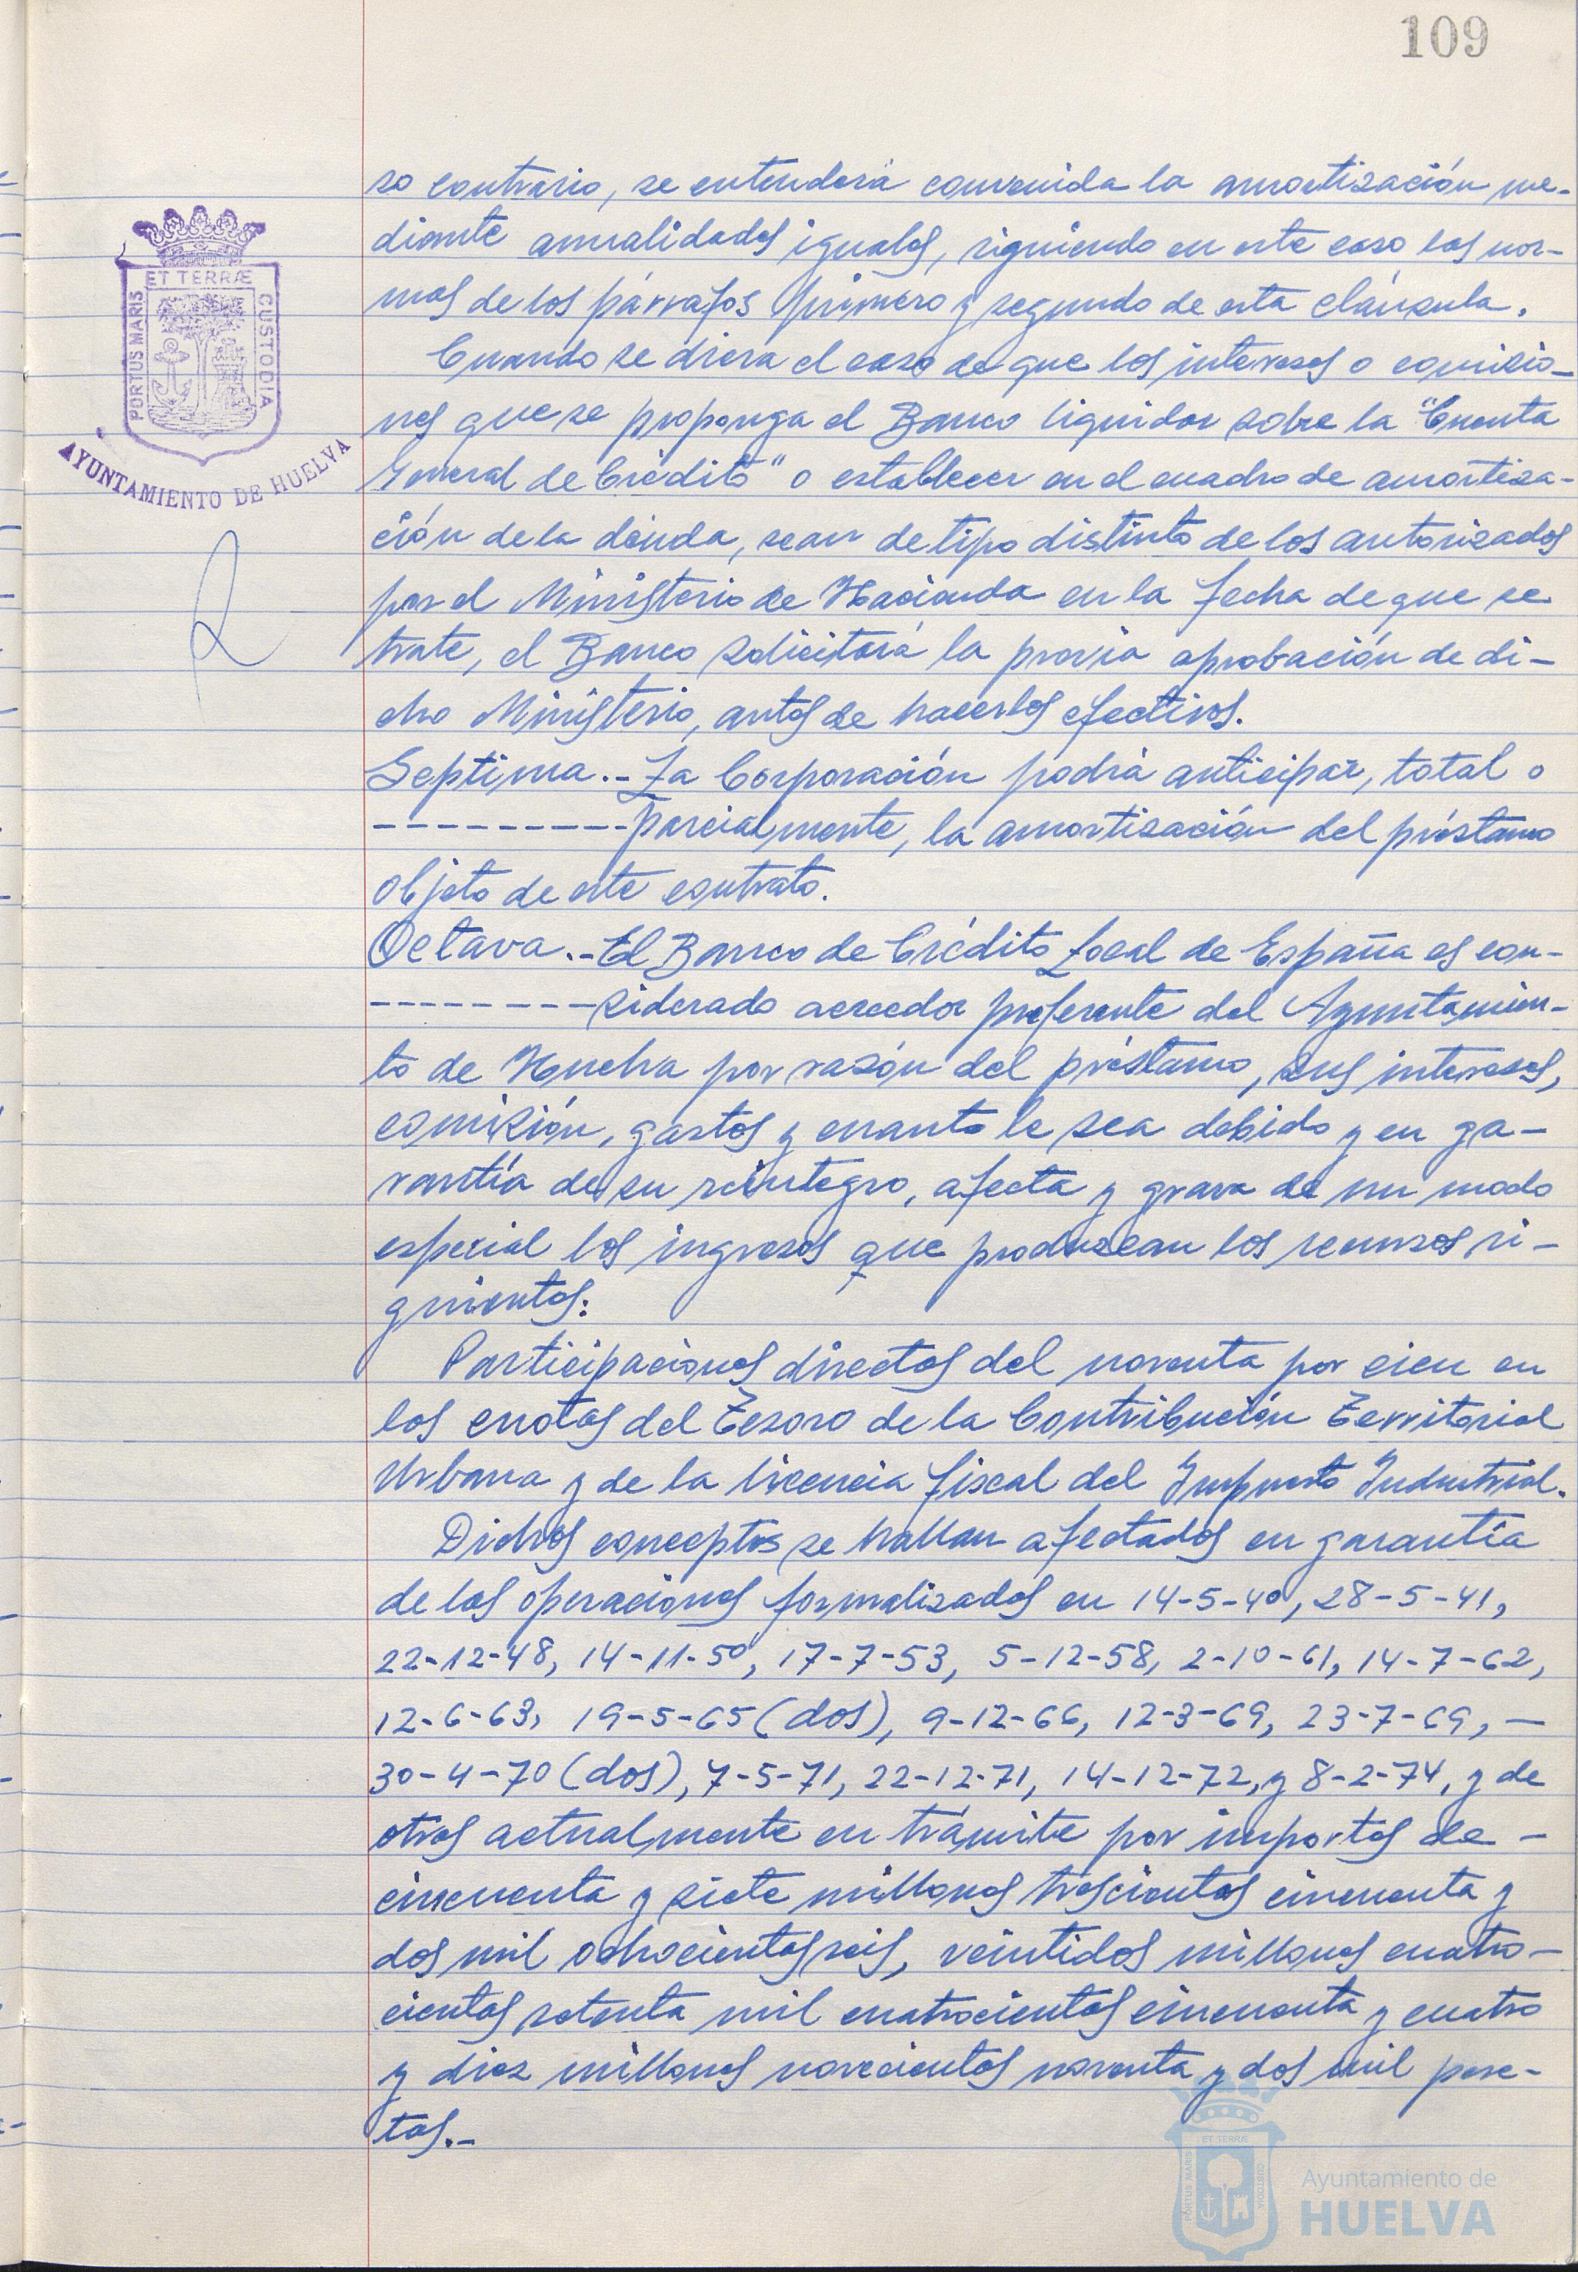 109
ET TERRÆ
PORTUS MARIS
CUSTODIA
AYUNTAMIENTO DE HUELVA
so contrario, se entenderá convenida la amortización me-
diante anualidades iguales, siguiendo en este caso las nor-
mas de los párrafos primero y segundo de esta cláusula.
Cuando se diera el caso de que los intereses o comisio-
nes que se proponga el Banco liquidar sobre la "Cuenta
General de Crédito" o establecer en el cuadro de amortiza-
ción de la deuda, sean de tipo distinto de los autorizados
por el Ministerio de Hacienda en la fecha de que se
trate, el Banco solicitará la previa aprobación de di-
cho Ministerio, antes de hacerlos efectivos.
Septima.- La Corporación podrá anticipar, total o
---------parcialmente, la amortización del préstamo
objeto de este contrato.
Octava.- El Banco de Crédito Local de España es con-
--------siderado acreedor preferente del Ayuntamien-
to de Huelva por razón del préstamo, sus intereses,
comisión, gastos y cuanto le sea debido y en ga-
rantía de su reintegro, afecta y grava de un modo
especial los ingresos que produzcan los recursos si-
guientes:
Participaciones directas del noventa por cien en
las cuotas del Tesoro de la Contribución Territorial
Urbana y de la licencia fiscal del Impuesto Industrial.
Dichos conceptos se hallan afectados en garantía
de las operaciones formalizadas en 14-5-40, 28-5-41,
22-12-48, 14-11-50, 17-7-53, 5-12-58, 2-10-61, 14-7-62,
12-6-63, 19-5-65 (dos), 9-12-66, 12-3-69, 23-7-69, -
30-4-70 (dos), 7-5-71, 22-12-71, 14-12-72, y 8-2-74, y de
otras actualmente en trámite por importes de -
cincuenta y siete millones trescientas cincuenta y
dos mil ochocientas seis, veintidos millones cuatro-
cientas setenta mil cuatrocientas cincuenta y cuatro
y diez millones novecientas noventa y dos mil pese-
tas.-
ET TERRÆ
PORTUS MARIS
CUSTODIA
Ayuntamiento de
HUELVA